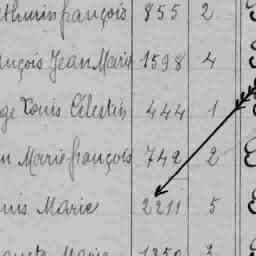 thurin françois 855 2
nçois Jean Marie 1598 4
ge Louis Célestin 444 1
n Marie françois 742 2
uis Marie 2211 5
Marie 1350 3